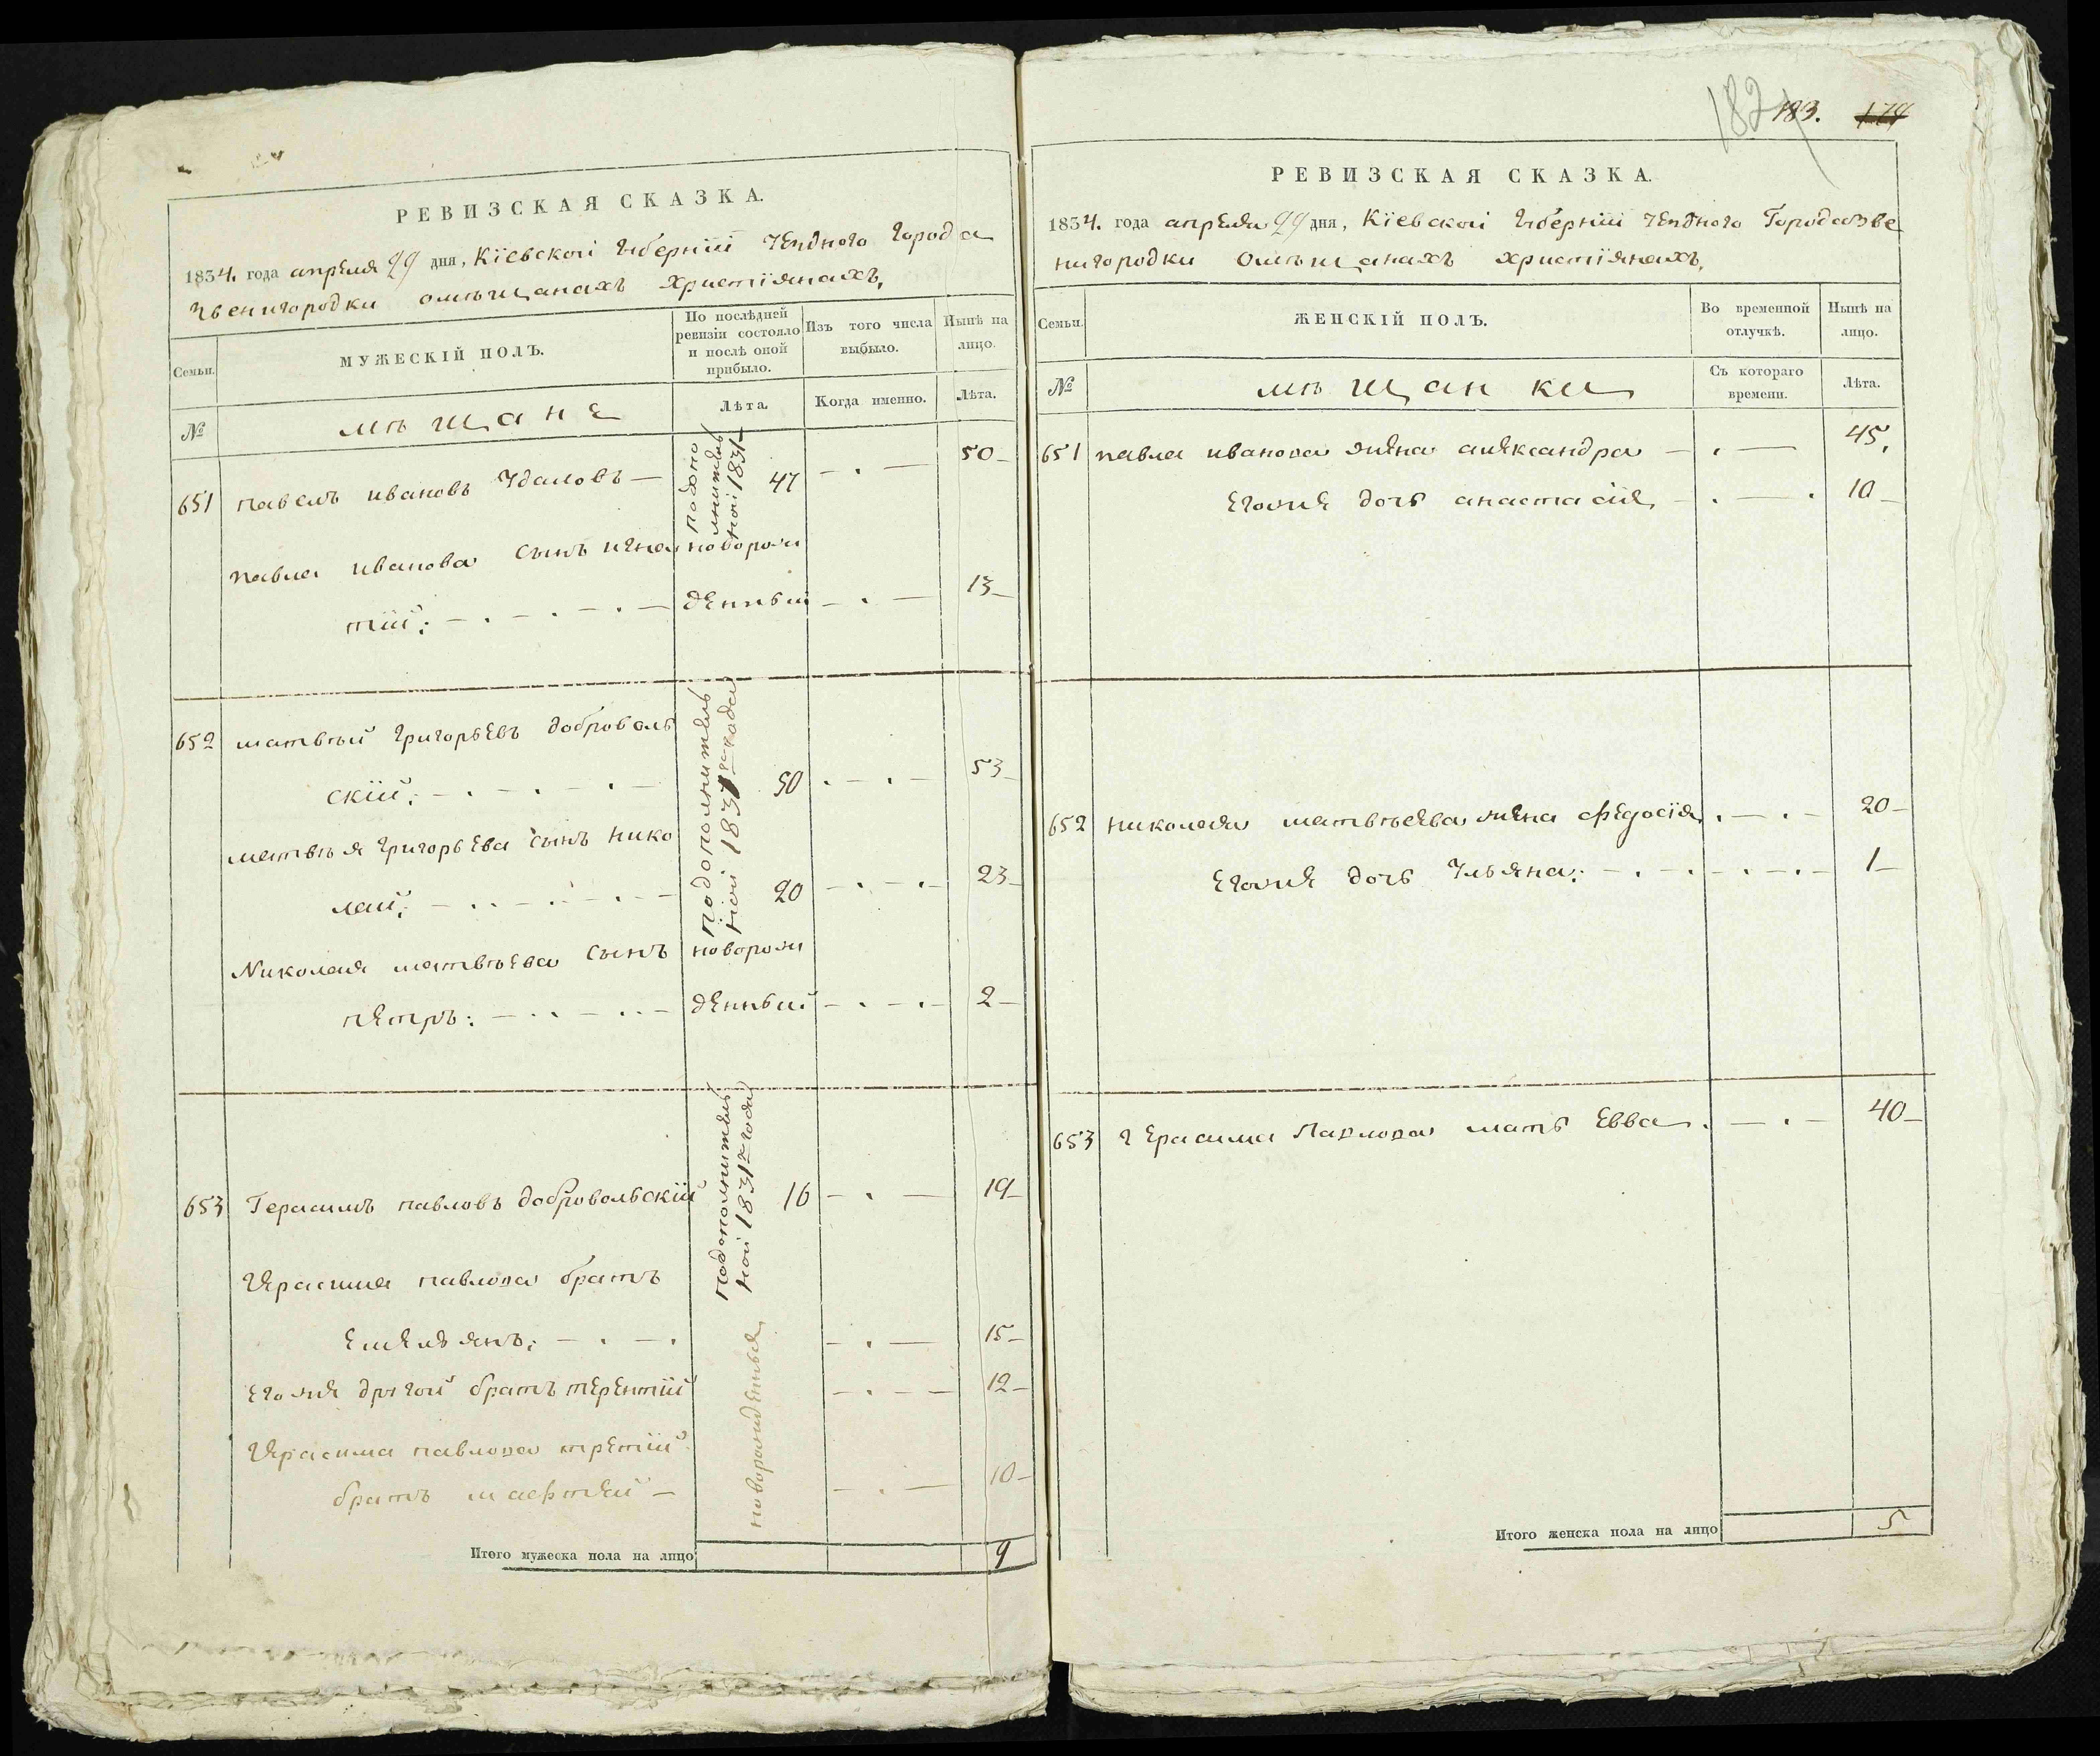 РЕВИЗСКАЯ СКАЗКА.
1834. года апреля 29 дня, Кіевской Губерніи уезднаго города
Звенигородки омѣщанахъ христіянахъ,
Семьи.
МУЖЕСКІЙ ПОЛЪ.
По послѣдней
ревизіи состояло
и послѣ оной
прибыло.
Изъ того числа
выбыло.
Нынѣ на
лицо.
№
мѣщане
Лѣта.
Когда именно.
Лѣта.
651 павелъ ивановъ Удаловъ — 47 — . — 50
подопо
лнитель
ной 1831
павла иванова сынъ игна новорож
тій: денный — . — 13
652 матвѣй григорьевъ доброволь
скій: 50 . — . — 53
подополнитель
ной 1831го года
матвѣя григорьева сынъ нико
лай: 20 — . — . 23
Николая матвѣева сынъ новорож
петръ: денный — . — . 2
653 Герасимъ павловъ добровольскій 16 — . — 19
подополнитель
ной 1831го года
Герасима павлова братъ
емельянъ: — . — . — . — 15
его же другой братъ терентій — . — 12
новорожденныя
Герасима павлова третій
братъ мафтей — — . — 10
Итого мужеска пола на лицо 9
182 183. 174
РЕВИЗСКАЯ СКАЗКА.
1834. года апреля 29 дня, Кіевской Губерніи уезднаго Города Зве
нигородки омѣщанахъ христіянахъ,
Семьи.
ЖЕНСКІЙ ПОЛЪ.
Во временной
отлучкѣ.
Нынѣ на
лицо.
№
мѣщанки
Съ котораго
времени.
Лѣта.
651 павла иванова жена александра — . — 45.
его же дочь анастасія — . — . 10
652 николая матвѣева жена федосія . — . — 20
его же дочь Ульяна: — . — . — . — . — 1
653 Герасима Павлова мать Евва . — . — 40
Итого женска пола на лицо 5